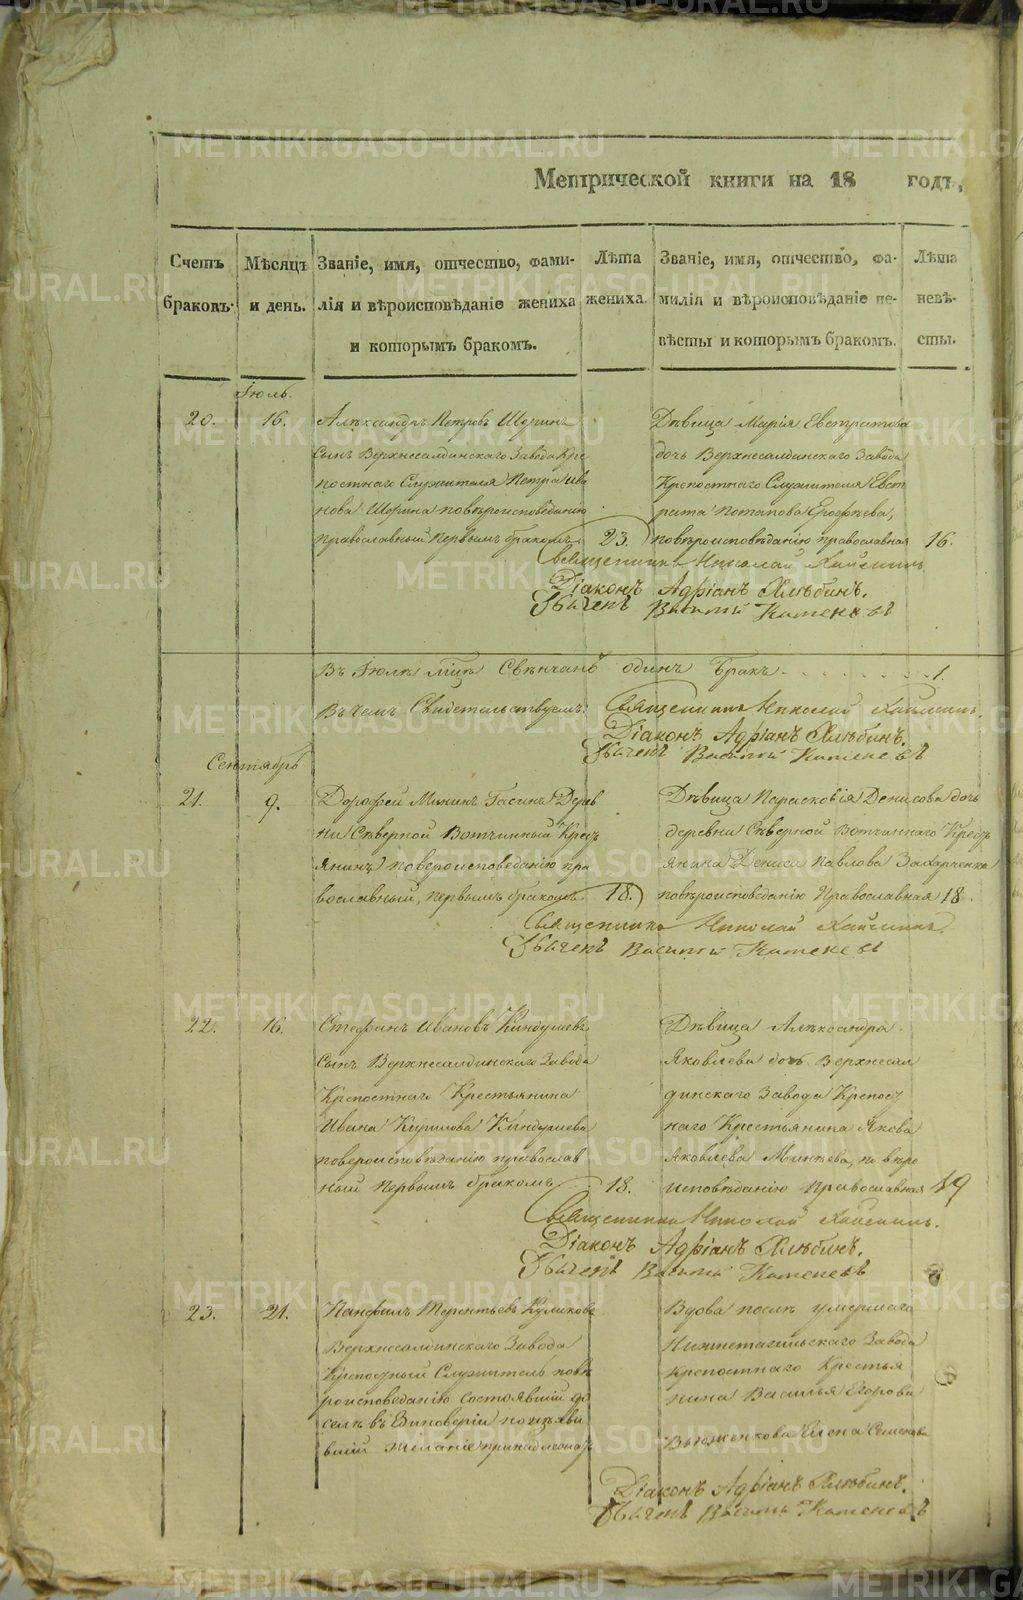 Метрической книги на 18 годъ,
Счетъ браковъ.
Мѣсяцъ и день.
Званіе, имя, отчество, фами-
лія и вѣроисповѣданіе жениха
и которымъ бракомъ.
Лѣта жениха.
Званіе, имя, отчество, фа-
милія и вѣроисповѣданіе не-
вѣсты и которымъ бракомъ.
Лѣта невѣ-
сты.
Іюль.
20.
16.
Алѣксандръ Петровъ Шоринъ
сынъ Верхнесалдинскаго Завода Кре
постнаго Служителя Петра Ива
нова Шорина повѣроисповѣданію
православный первымъ бракомъ
23.
Дѣвица Марія Евстратова
дочь Верхнесалдинскаго Завода
Крѣпостнаго Служителя Евст
рата Потапова Ерофѣева,
повѣроисповѣданію православная
16.
Священникъ Николай
Діаконъ Адріанъ Хлѣбинъ.
Василій
Въ Іюлѣ Мцѣ Свѣнчанъ одинъ Бракъ. . . . . . . . 1.
Въ чемъ Свидетельствуемъ: Священникъ Николай
Діаконъ Адріанъ Хлѣбинъ.
Василій
Сентябрь
21.
9.
Дорофей Мининъ Дерев
ни Сѣверной Вотчинный Крест
янинъ повероисповеданію пра
вославный, первымъ бракомъ
18.
Дѣвица Парасковія Денисова дочь
деревни Сѣверной Вотчиннаго Крест
янина Дениса Павлова Захарченка
повѣроисповеданію Православная
18.
Священникъ Николай
Василій
22.
16.
Стефанъ Ивановъ
сынъ Верхнесалдинскаго Завода
Крепостнаго Крестьянина
Ивана Кирилова
повероисповѣданію православ
ный первымъ бракомъ
18.
Дѣвица Алѣксандра
Яковлева дочь Верхнесал
динскаго Завода Крепост
наго Крестьянина Якова
Яковлева Минѣева, по вѣро
исповѣданію православная
19
Священникъ Николай
Діаконъ Адріанъ Хлѣбинъ.
Василій
23.
21.
Панфилъ Терентьевъ Куликовъ
Верхнесалдинскаго Завода
Крепостный Служитель повѣ
роисповеданію состоявшій до
селѣ въ Единоверіи но изъяви
вшій желаніе принадлежать
Вдова послѣ умершаго
Нижнетагильскаго Завода
крепостнаго Крестья
нина Василья Егорова
Елена Семенова
Діаконъ Адріанъ Хлѣбинъ.
Василій